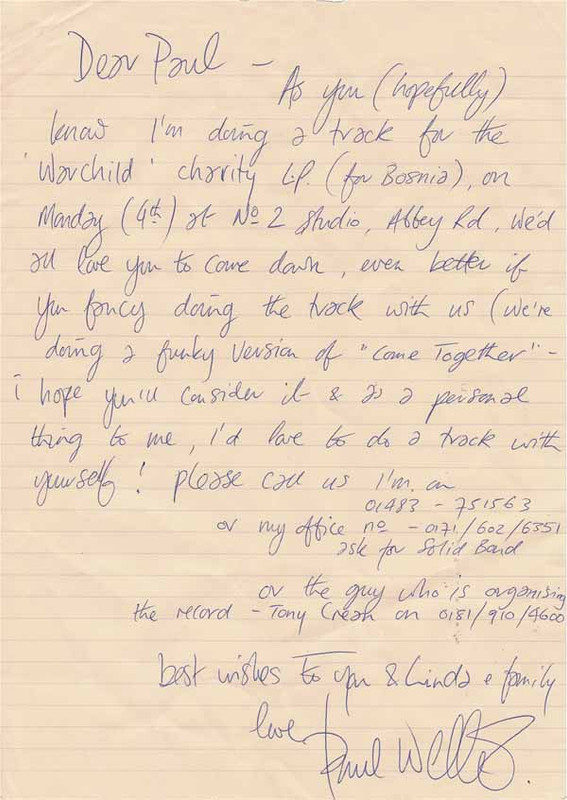 Dear Paul —
As you (hopefully)
know I'm doing a track for the
'Warchild' charity L.P. (for Bosnia), on
Monday (4th) at Nº 2 Studio, Abbey Rd, we'd
all love you to come down, even better if
you fancy doing the track with us (we're
doing a funky version of "Come Together" -
i hope you'll consider it & as a personal
thing to me, I'd love to do a track with
yourself! please call us I'm on
01483 - 751563
or my office nº - 0171/602/6351
ask for Solid Bond
or the guy who is organising
the record - Tony Crean on 0181/910/4600
best wishes to you & Linda & family
love,
Paul Weller.